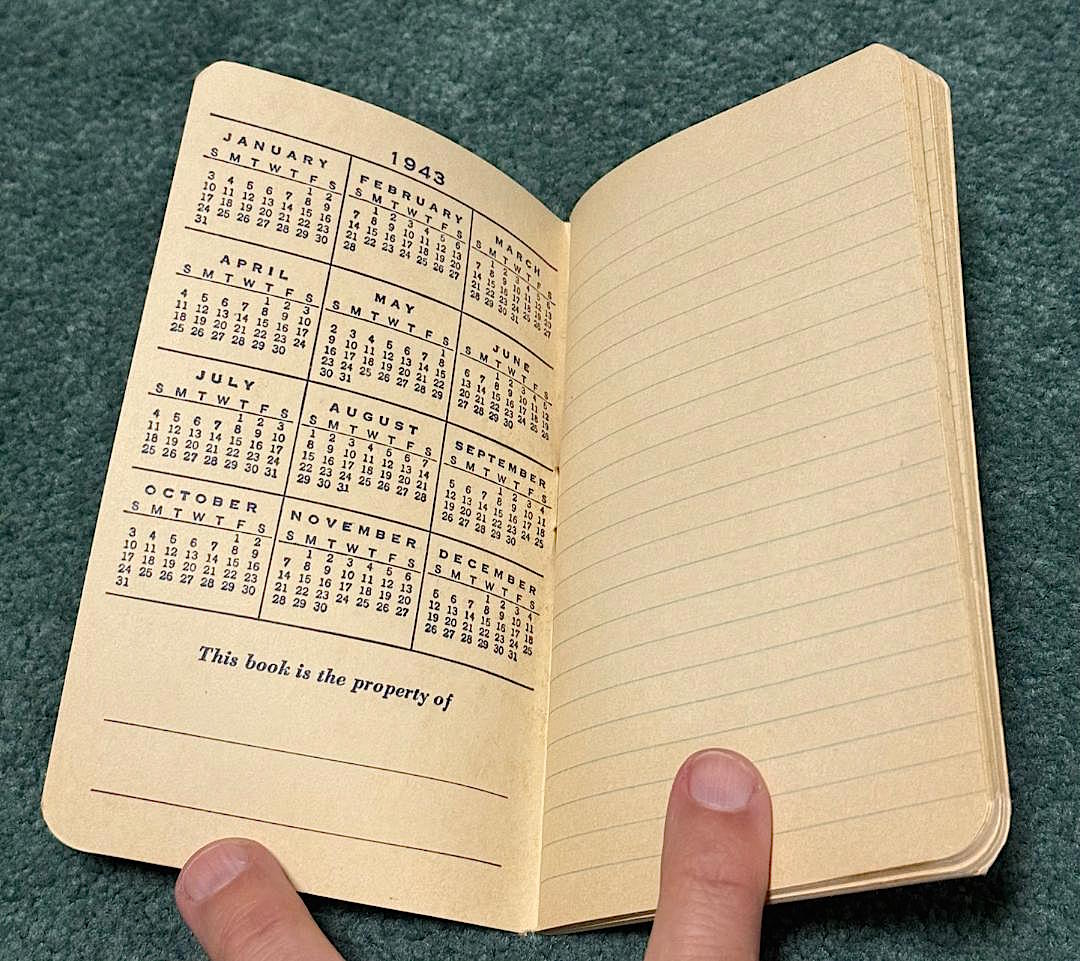 1943
JANUARY
S M T W T F S
1 2
3 4 5 6 7 8 9
10 11 12 13 14 15 16
17 18 19 20 21 22 23
24 25 26 27 28 29 30
31
FEBRUARY
S M T W T F S
1 2 3 4 5 6
7 8 9 10 11 12 13
14 15 16 17 18 19 20
21 22 23 24 25 26 27
28
MARCH
S M T W T F S
1 2 3 4 5 6
7 8 9 10 11 12 13
14 15 16 17 18 19 20
21 22 23 24 25 26 27
28 29 30 31
APRIL
S M T W T F S
1 2 3
4 5 6 7 8 9 10
11 12 13 14 15 16 17
18 19 20 21 22 23 24
25 26 27 28 29 30
MAY
S M T W T F S
1
2 3 4 5 6 7 8
9 10 11 12 13 14 15
16 17 18 19 20 21 22
23 24 25 26 27 28 29
30 31
JUNE
S M T W T F S
1 2 3 4 5
6 7 8 9 10 11 12
13 14 15 16 17 18 19
20 21 22 23 24 25 26
27 28 29 30
JULY
S M T W T F S
1 2 3
4 5 6 7 8 9 10
11 12 13 14 15 16 17
18 19 20 21 22 23 24
25 26 27 28 29 30 31
AUGUST
S M T W T F S
1 2 3 4 5 6 7
8 9 10 11 12 13 14
15 16 17 18 19 20 21
22 23 24 25 26 27 28
29 30 31
SEPTEMBER
S M T W T F S
1 2 3 4
5 6 7 8 9 10 11
12 13 14 15 16 17 18
19 20 21 22 23 24 25
26 27 28 29 30
OCTOBER
S M T W T F S
1 2
3 4 5 6 7 8 9
10 11 12 13 14 15 16
17 18 19 20 21 22 23
24 25 26 27 28 29 30
31
NOVEMBER
S M T W T F S
1 2 3 4 5 6
7 8 9 10 11 12 13
14 15 16 17 18 19 20
21 22 23 24 25 26 27
28 29 30
DECEMBER
S M T W T F S
1 2 3 4
5 6 7 8 9 10 11
12 13 14 15 16 17 18
19 20 21 22 23 24 25
26 27 28 29 30 31
This book is the property of